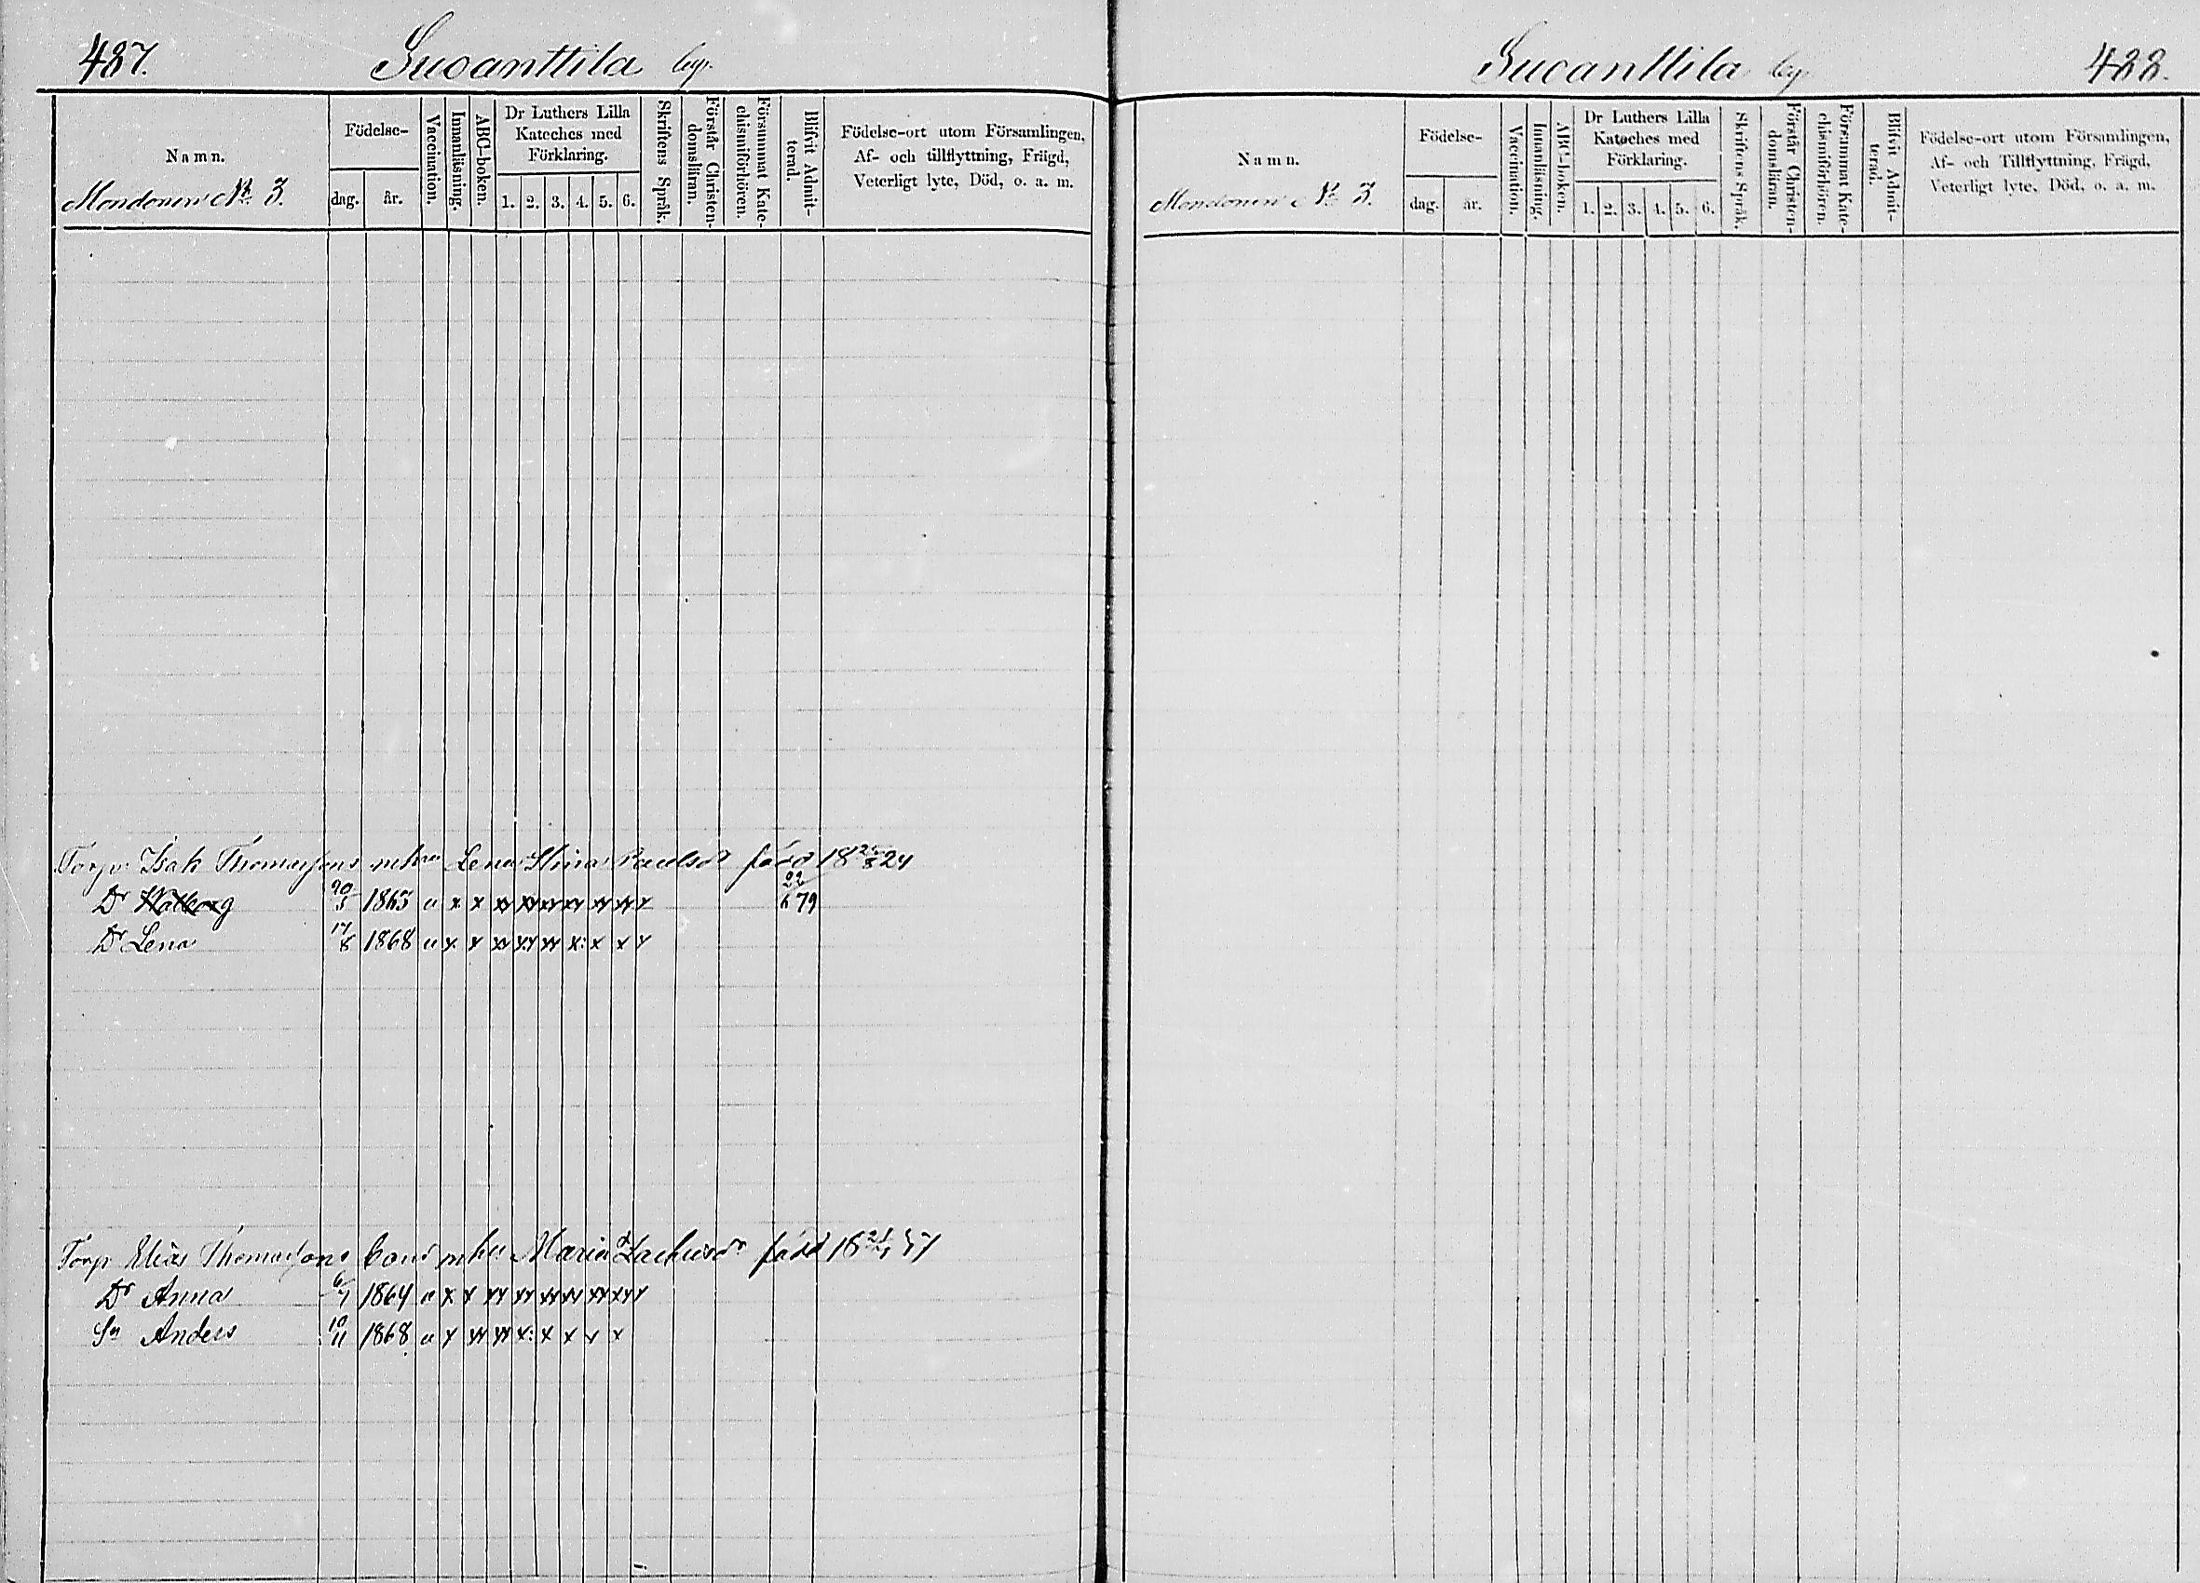 487. Suoanttila by.
Namn.
Mondonen № 3.
Födelse-
dag. år.
Vaccination.
Innanläsning.
ABC-boken.
Dr Luthers Lilla
Kateches med
Förklaring.
1. 2. 3. 4. 5. 6.
Skriftens Språk.
Förstår Christen-
domsläran.
Försummat Kate-
chismiförhören.
Blifvit Admit-
terad.
Födelse-ort utom Församlingen,
Af- och tillflyttning, Frägd,
Veterligt lyte, Död, o. a. m.
Torp. Isak Thomassons Lena Stina född 18 24
Dr Walborg 20/5 1863 u x x xx xx xx xx xx xx x 22/6 79
Dr Lena 17/8 1868 u x x xx xx xx x: x x x
Torp. Elias Thomassons Maria född 18 37
Dr Anna 6/7 1864 u x x xx xx xx xx xx xx x
Sn Anders 10/11 1868 u x xx xx x: x x x x
Suoanttila by 488.
Namn.
Mondonen № 3.
Födelse-
dag. år.
Vaccination.
Innanläsning.
ABC-boken.
Dr Luthers Lilla
Kateches med
Förklaring.
1. 2. 3. 4. 5. 6.
Skriftens Språk.
Förstår Christen-
domsläran.
Försummat Kate-
chismiförhören.
Blifvit Admit-
terad.
Födelse-ort utom Församlingen,
Af- och Tillflyttning, Frägd,
Veterligt lyte, Död, o. a. m.